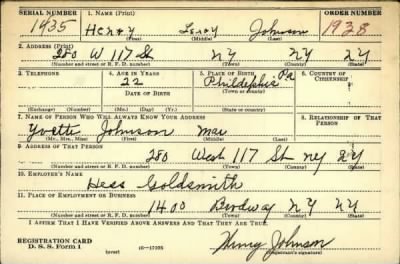 SERIAL NUMBER 1. NAME (Print) ORDER NUMBER
1435 Henry Leroy Johnson 1928
(First) (Middle) (Last)
2. ADDRESS (Print)
280 W 117 St NY NY NY
(Number and street or R. F. D. number) (Town) (County) (State)
3. TELEPHONE 4. AGE IN YEARS 5. PLACE OF BIRTH 6. COUNTRY OF CITIZENSHIP
22 Phildelphia Pa
DATE OF BIRTH (Town or county)
(Exchange) (Number) (Mo.) (Day) (Yr.) (State or country)
7. NAME OF PERSON WHO WILL ALWAYS KNOW YOUR ADDRESS 8. RELATIONSHIP OF THAT PERSON
Yvette Johnson
(Mr., Mrs., Miss) (First) (Middle) (Last)
9. ADDRESS OF THAT PERSON
280 West 117 St NY NY
(Number and street or R. F. D. number) (Town) (County) (State)
10. EMPLOYER'S NAME
Hess Goldsmith
11. PLACE OF EMPLOYMENT OR BUSINESS
1400 Brodway NY NY
(Number and street or R. F. D. number) (Town) (County) (State)
I AFFIRM THAT I HAVE VERIFIED ABOVE ANSWERS AND THAT THEY ARE TRUE.
REGISTRATION CARD
D. S. S. Form 1 16—17105 Henry Johnson
(Registrant's signature)